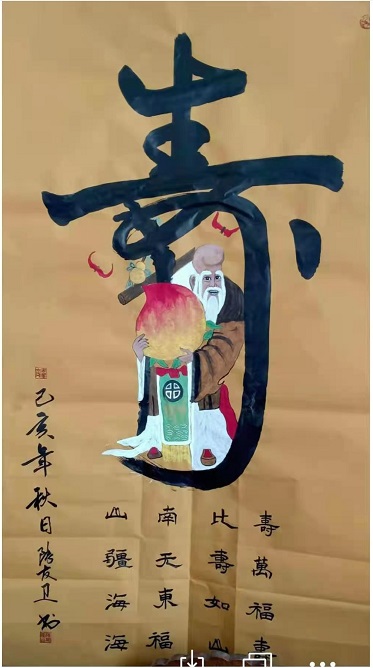 壽
壽比南山
萬壽无疆
福如東海
壽山福海
己亥年秋日